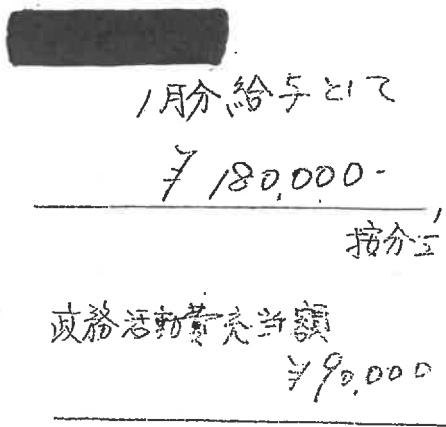 1月分給与として
¥180,000-
按分1/2
政務活動費充当額
¥90,000